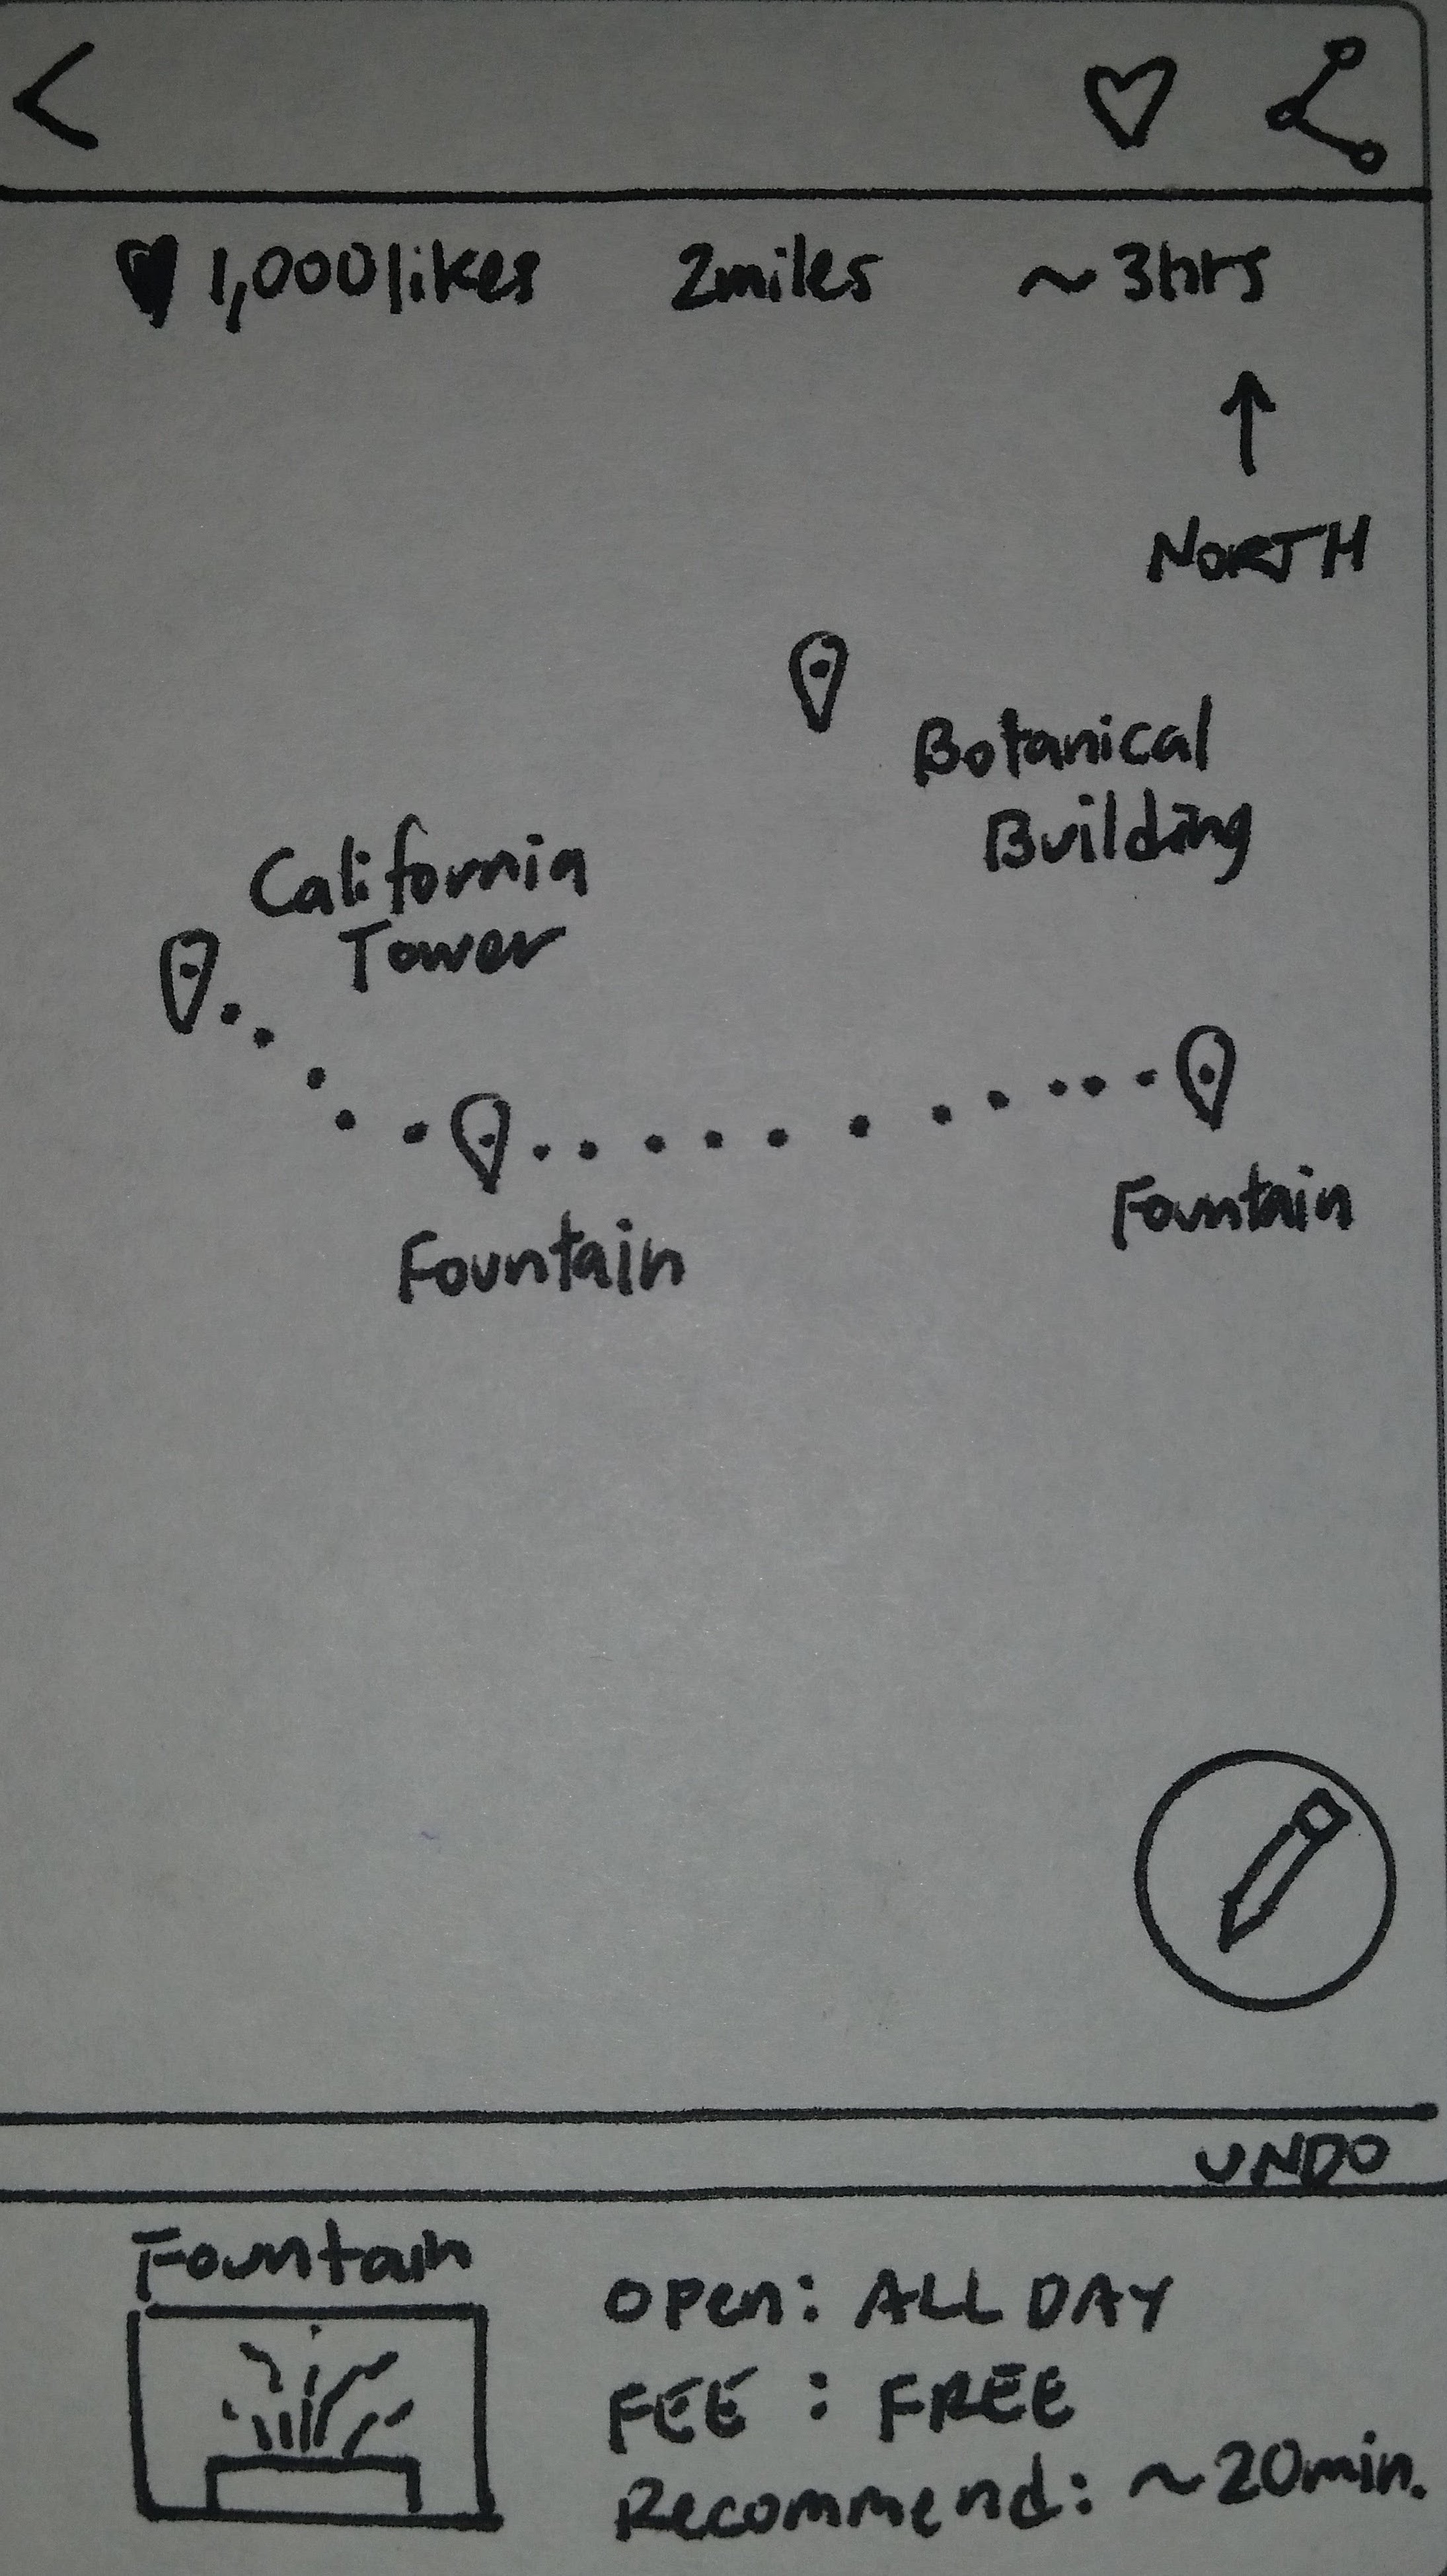 1,000 likes 2miles ~3hrs
NORTH
Botanical
Building
California
Tower
Fountain
Fountain
UNDO
Fountain
Open: ALL DAY
FEE : FREE
Recommend: ~20min.